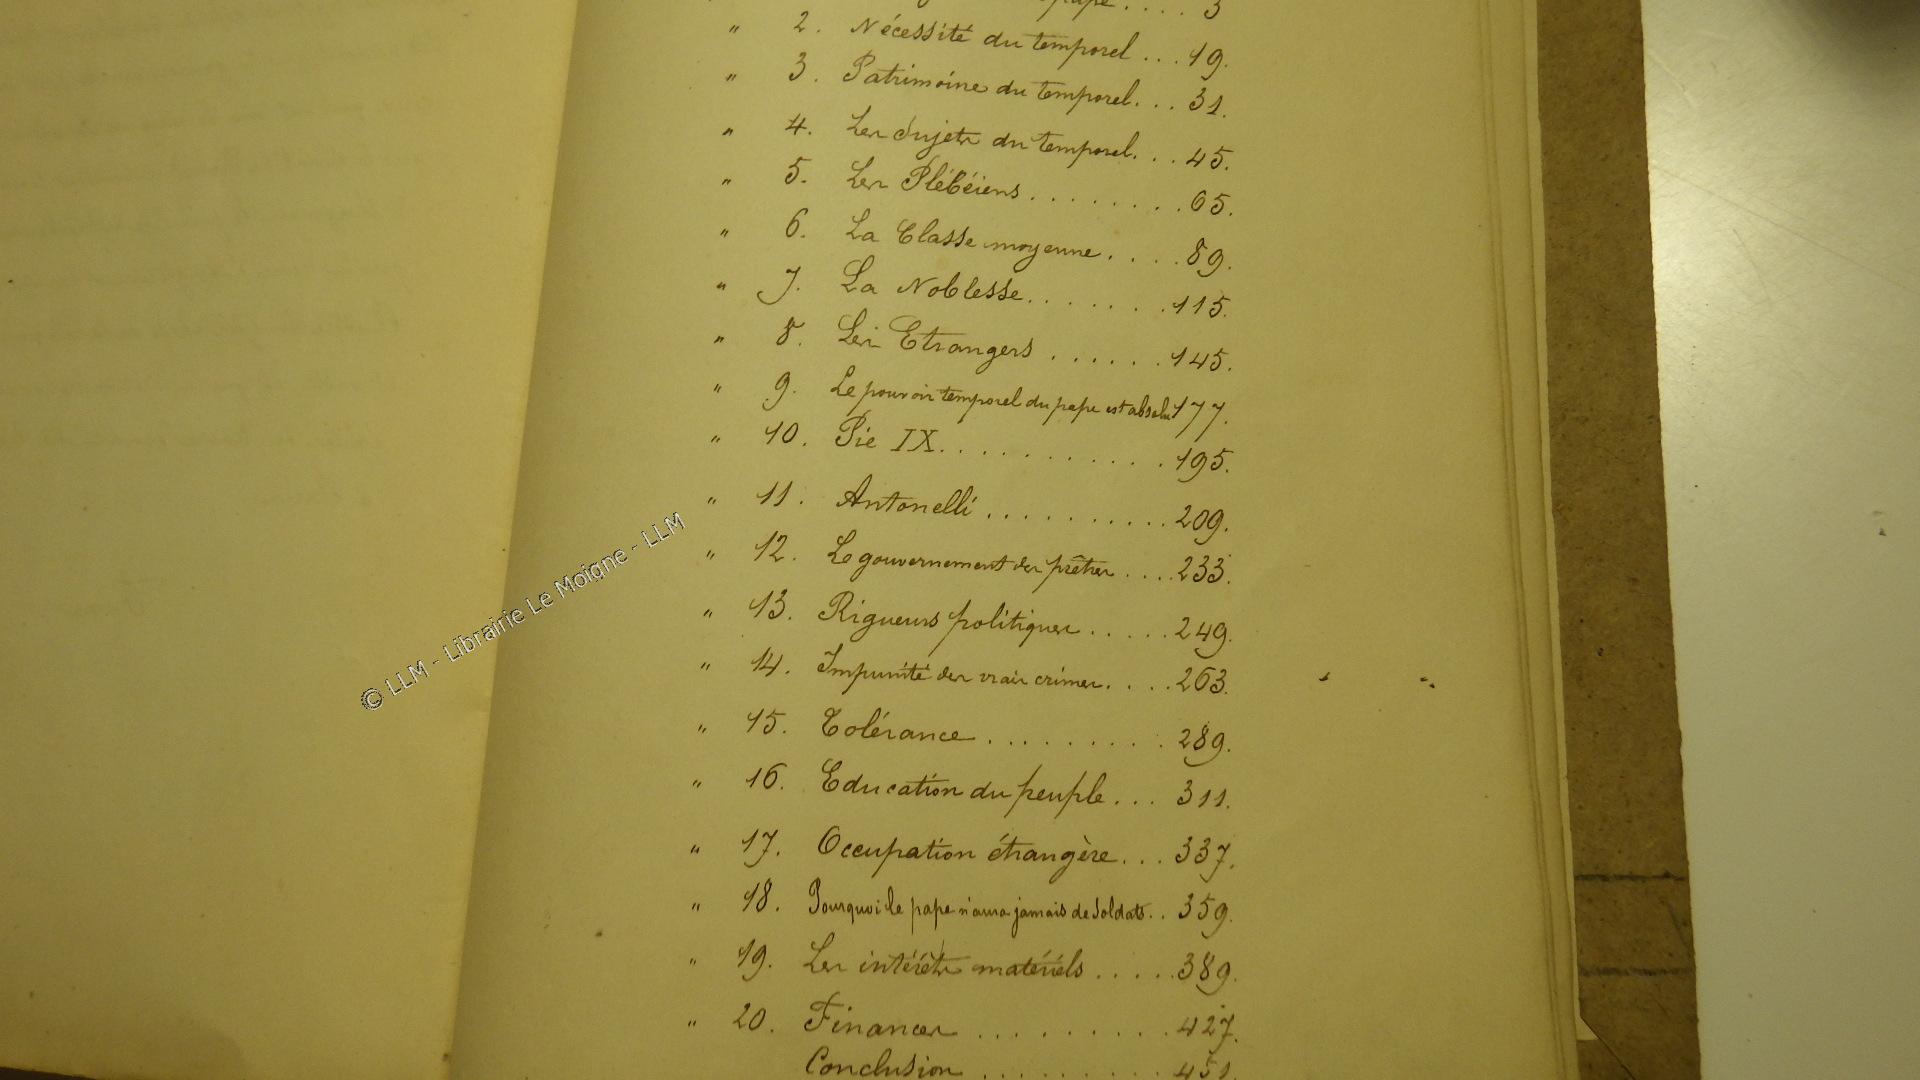 pape .... 3
" 2. Nécessité du temporel ... 19.
" 3. Patrimoine du temporel... 31.
" 4. Les Sujets du temporel... 45.
" 5. Les Plébéiens ........ 65.
" 6. La Classe moyenne .... 89.
" 7. La Noblesse ....... 115.
" 8. Les Etrangers ...... 145.
" 9. Le pouvoir temporel du pape est absolu 177.
" 10. Pie IX ........... 195.
" 11. Antonelli .......... 209.
" 12. Le gouvernement des prêtres .... 233.
" 13. Rigueurs politiques ..... 249.
" 14. Impunité des vrais crimes .... 263.
" 15. Tolérance ......... 289.
" 16. Education du peuple ... 311.
" 17. Occupation étrangère ... 337.
" 18. Pourquoi le pape n'aura jamais de soldats .. 359.
" 19. Les intérêts matériels ..... 389.
" 20. Finances ......... 427.
Conclusion ......... 451.
© LLM - Librairie Le Moigne - LLM